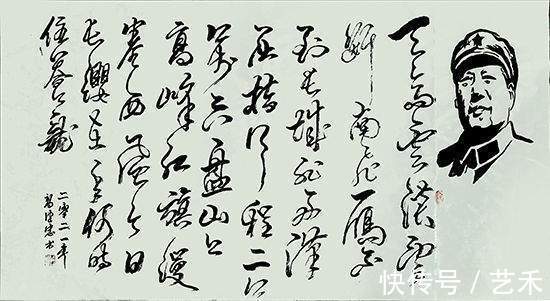 天高云淡望
断南飞雁不
到长城非好漢
屈指行程二
萬六盘山上
高峰红旗漫
卷西风今日
长缨在手何时
住苍龙
二零二一年
书
快传号 / 艺禾